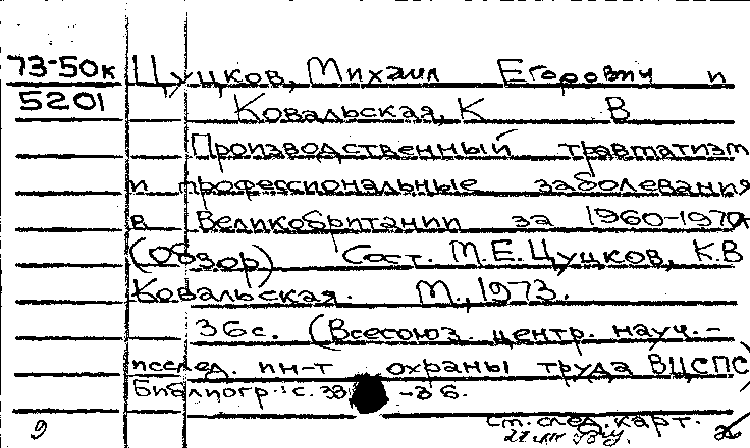 73-50к Цуцков, Михаил Егорович и
5201 Ковальская, К В
Производственный травматизм
и профессиональные заболевания
в Великобритании за 1960-1970
(обзор) Сост. М.Е.Цуцков, К.В
Ковальская. М., 1973.
36с. (Всесоюз. центр. науч.-
исслед. ин-т охраны труда ВЦСПС)
Библиогр.: с. 33 -36.
9 см. след. карт.